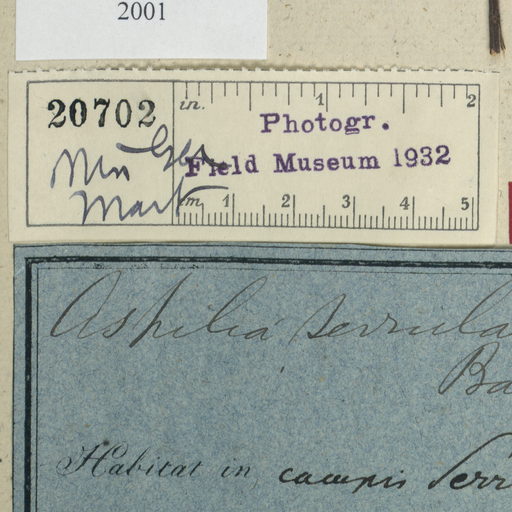 2001
20702
in. 1 2
Photogr.
Field Museum 1932
Mus Gen
Mart
m. 1 2 3 4 5
Aspilia serrula
Ba
Habitat in campis Serr